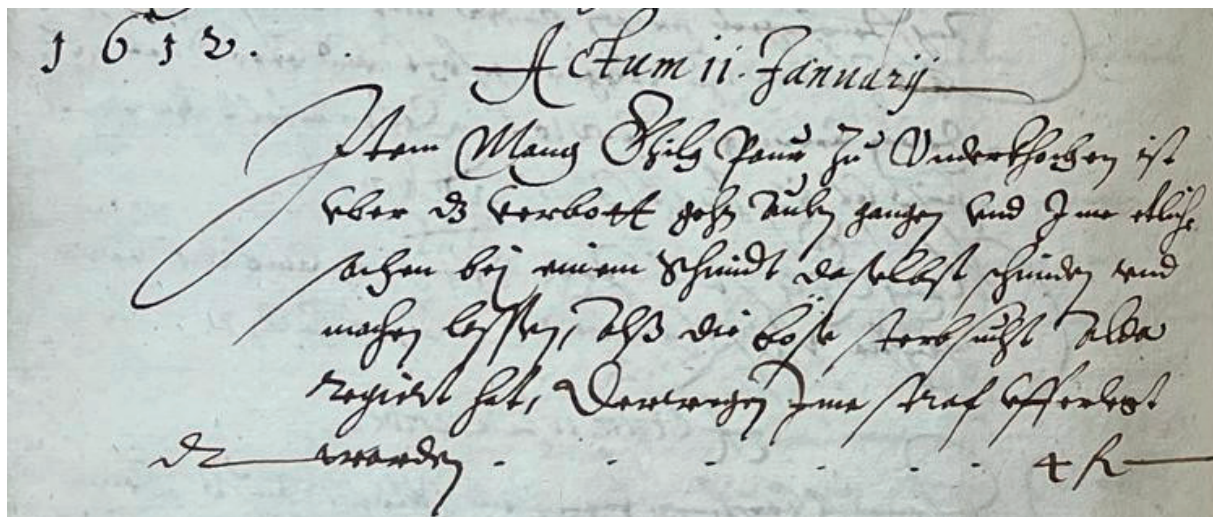 1612.
Actum 11. Januarij
Item Mang Hilg Paur zu Underkhochen ist
vber dz verbott gehn Aulen gangen vnd Ime etliche
sachen bej einem Schmidt daselbst schmiden vnd
machen lassen, Alß die böse sterbsucht Alda
regiert hat, Derwegen Ime straf vfferlegt
dt worden . . . . . . 4 fl